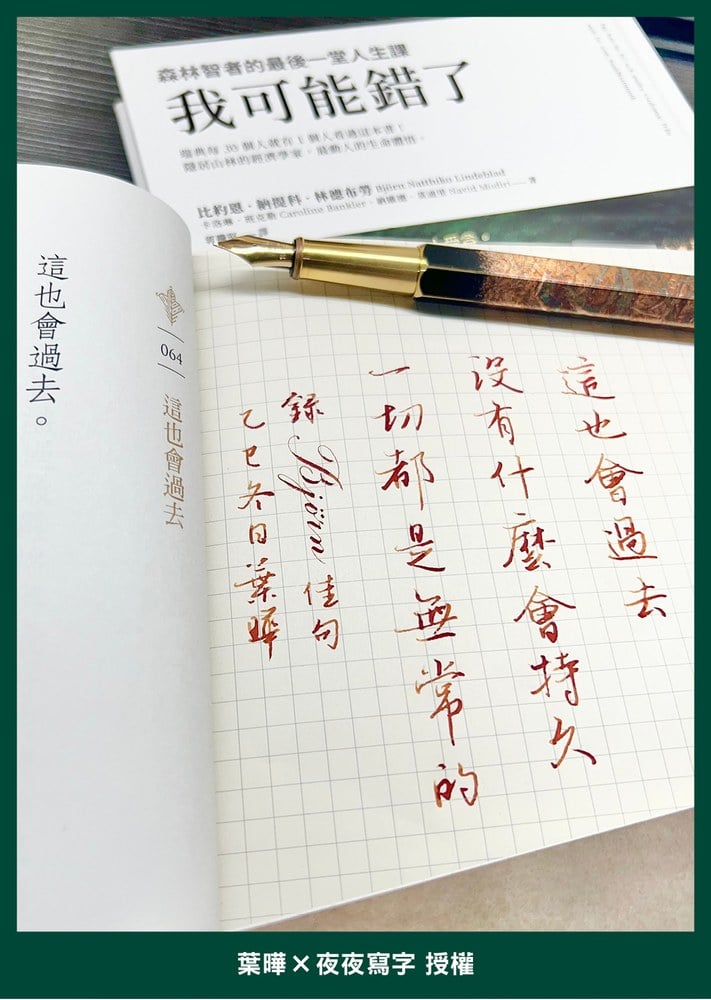 森林智者的最後一堂人生課
我可能錯了
瑞典每 30 個人就有 1 個人看過這本書！
隱居山林的經濟學家，最動人的生命體悟。
比約恩・納提科・林德布勞 Björn Natthiko Lindeblad
卡洛琳・班克勒 Caroline Bankler、納維德・莫迪里 Navid Modiri──著
郭騰堅──譯
這也會過去。
064
這也會過去
這也會過去
沒有什麼會持久
一切都是無常的
錄 Björn 佳句
乙巳冬日葉曄
葉曄×夜夜寫字 授權